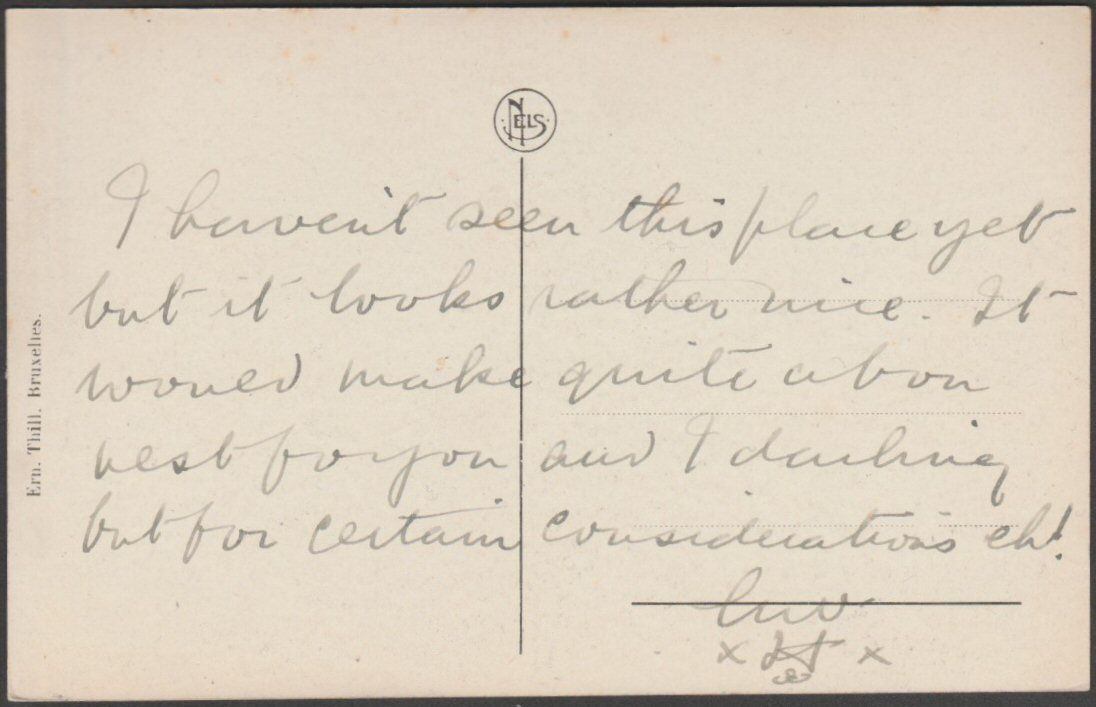 NELS
I haven't seen this place yet
but it looks rather nice. It
would make quite a bon
nest for you and I darling
but for certain considerations eh!
Luv
x x
Ern. Thill. Bruxelles.